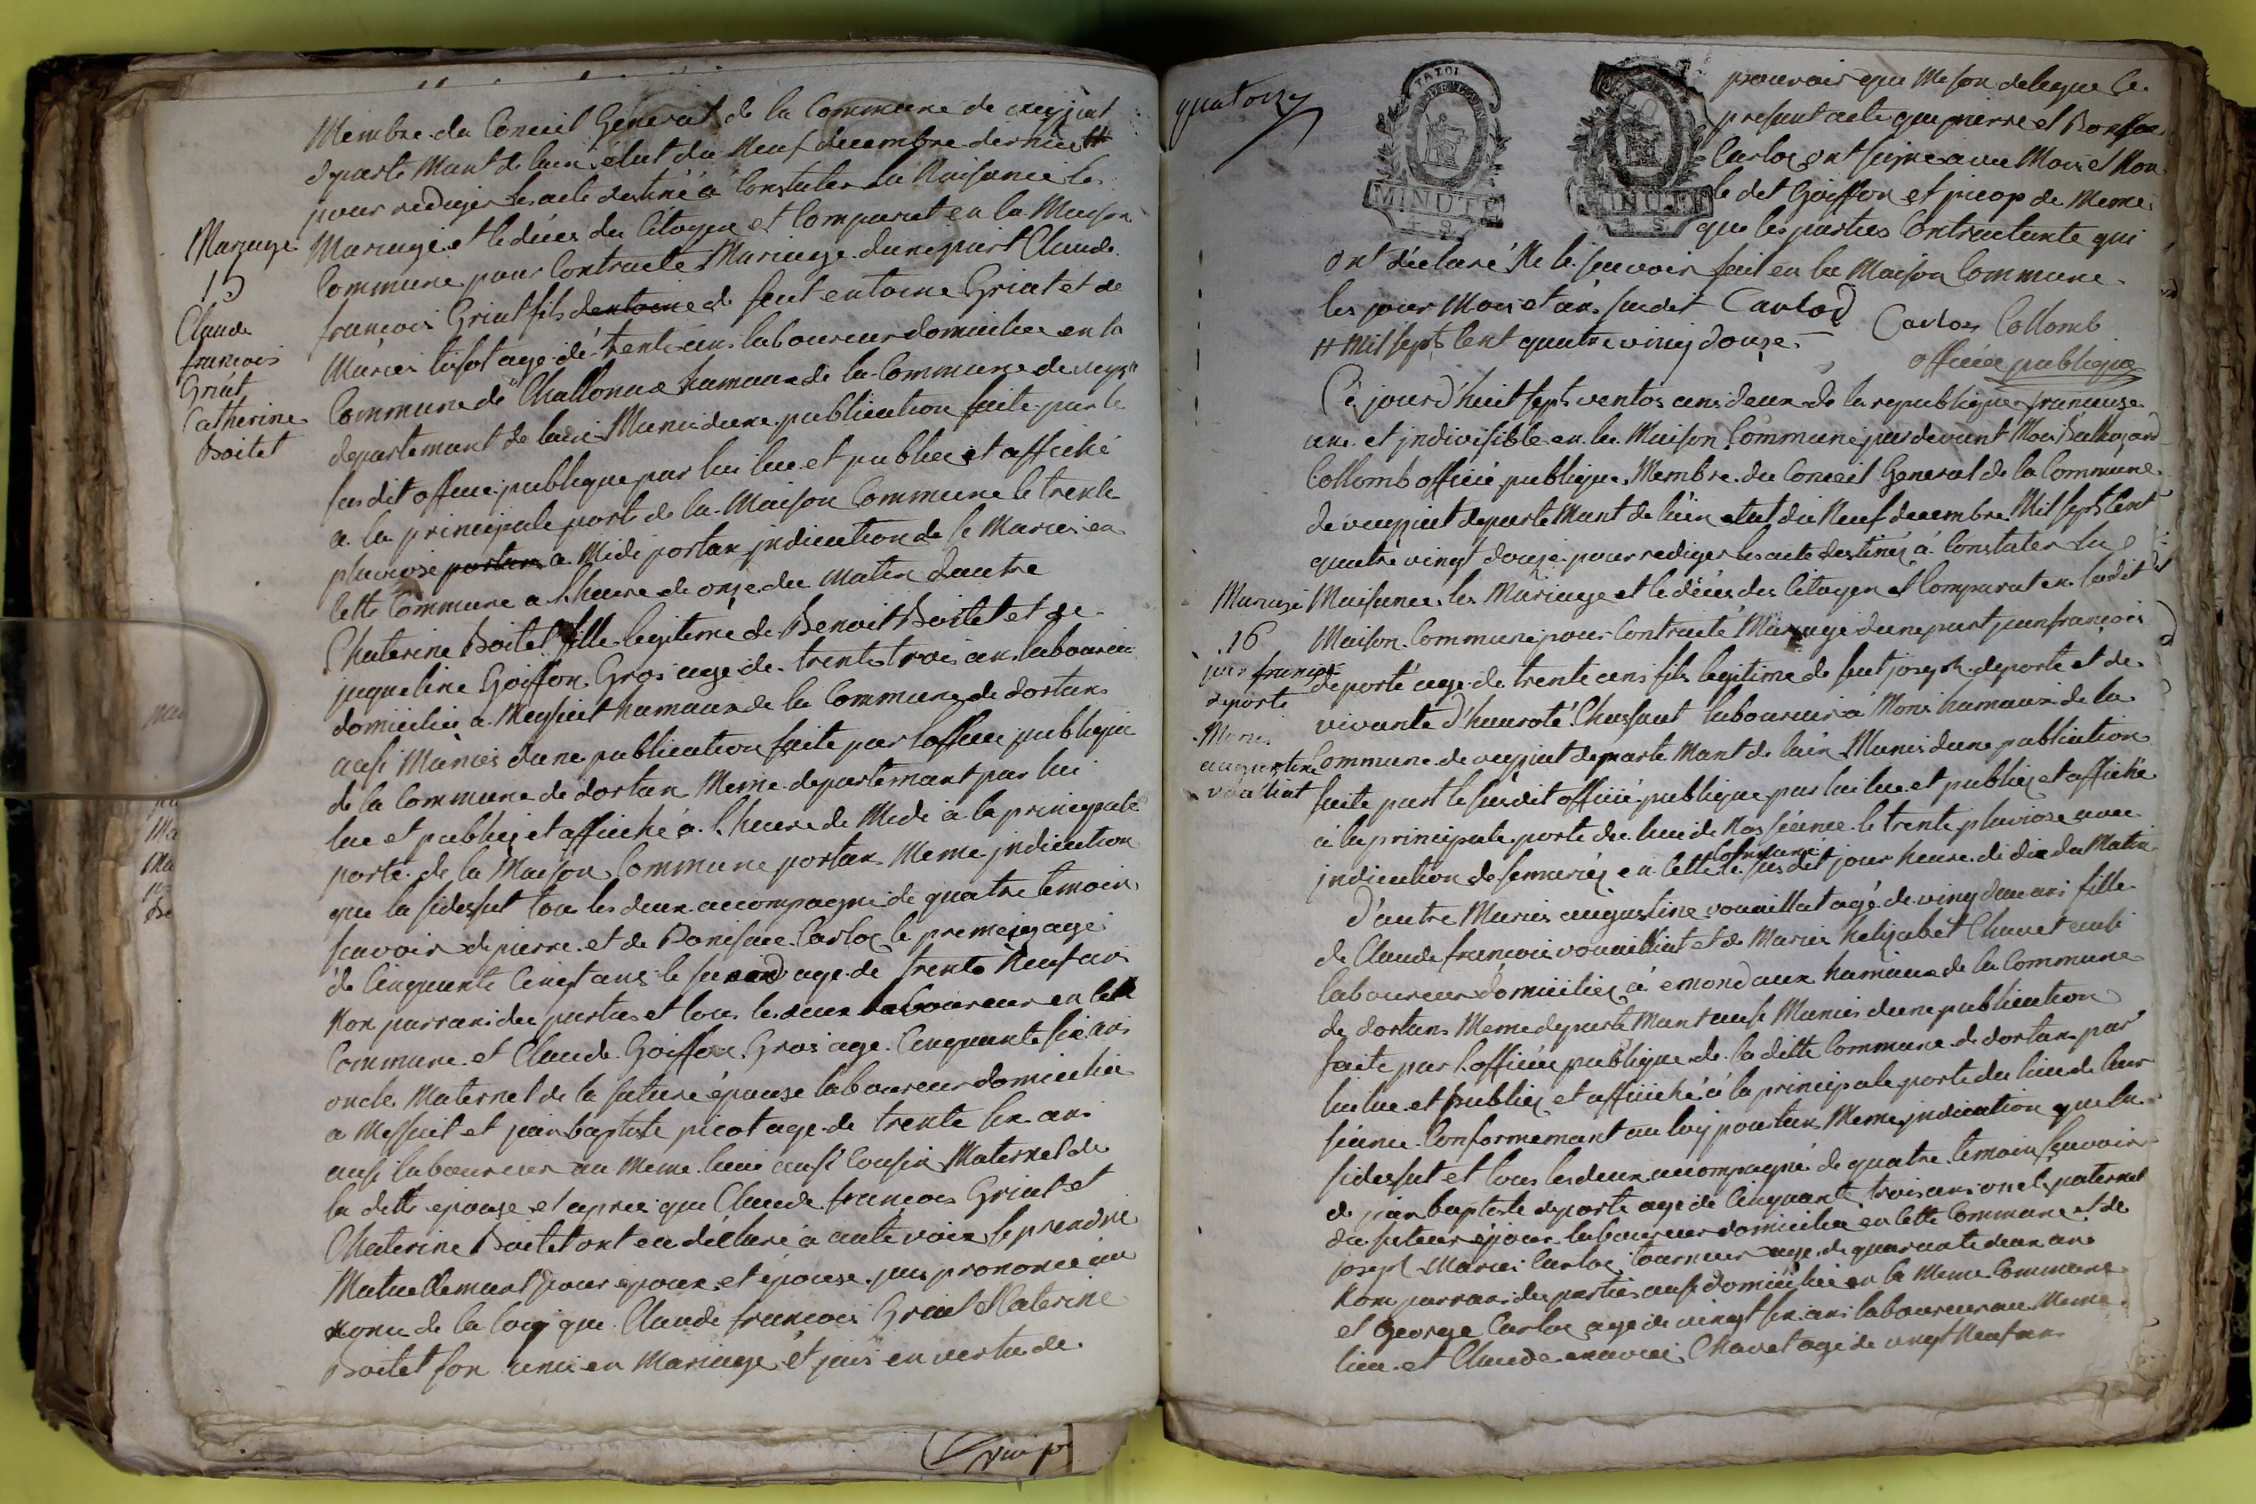 Membre du Conseil General de la Commune de veyziat
departe Mant de lain élut du Neuf decembre dernier #
pour rediger les acte destiné a Constater la Naisance les
Mariage et le déces des Citoyen et Comparut en la Maison
Commune pour Contracter Mariage dune part Claude
francois Griat fils dentoine de feut entoine Griat et de
Marie age de trente ans laboureur domicilié en la
Commune de Challonna hamaux de la Commune de veyz
departemant de lain Munis dune publication faite par le
susdit officie publique par lui lue et publiee et affiché
a la principale porte de la Maison Commune le trente
pluviose portans a Midi portan jndication de se Marier en
Cette Commune a lheure de onze du Matin dautre
Chaterine Boitet fille legitime de Benoit Boitet et de
jaqueline Goiffon Gros age de trente trois ans laboureur
domicilié a Messiat hamaux de la Commune de dortans
ausi Munies dune publication faite par loffice publique
de la Commune de dortan Meme departemant par lui
lue et publiez et affiiché a lheure de Midi a la principale
porte de la Maison Commune portan Meme jndication
que la sidessut tous les deux accompagné de quatre temoin
savoir de pierre et de Boniface Carloz le premier age
de Cinquante Cinqt ans le second age de trente Neuf ans
Non parrans des parties et tous les deux laboureur en cette
Commune et Claude Goiffon Gros age Cinquante six ans
oncle Maternel de la future épouse laboureur domicilié
a Messiat et jean baptiste picot age de trente six ans
ausi laboureur au Meme lieu ausi Cousin Maternel de
la ditte epouse et aprés que Claude francois Griat et
Chaterine Boitet ont eu déclaré a aute voix se prendre
Mutuellemant pour époux et épouse jais prononcé au
nom de la loy que Claude francois Griat et Caterine
Boitet son unis en Mariage et jais en vertu de
Mariage
15
Claude
francois
Griat
Catherine
Boitet
quatorze
MINUTE
MINUTE
pouvoir que Me son delegue Ce
present acte que pierre et Boniface
Carloz ont signe avec Moi et Non
le dit Goiffon et picop de Meme
que les parties Contractante qui
ont déclaré Ne le scavoir fait en la Maison Commune
les jour Mois et an susdit Carloz
Carloz Collomb
# mil sept Cent quatre ving douze
officie publique
Ce jourd'huit sept ventos ans deux de la republique francaise
une et jndivisible en la Maison Commune par devant Moi Balthazard
Collomb officié publique Membre du Conceil General de la Commune
de veyziat departe Mant de lain elut du Neuf decembre Mil sept Cent
quatre vingt douze pour rediger les acte destinés a Constater la
Maisance les Mariage et le déces des Citoyen et Comparut en ladit
Maison Commune pour Contracté Mariage dune part jean francois
deporte age de trente ans fils legitime de feut joseph deporte et de
vivante laboureur a Mons hamaux de la
Commune de veyziat departe Mant de lain Munis dune publication
faite part le susdit officié publique par lui lue et publiez et affiché
a la principale porte du lieu de Nos séance le trente pluviose avec
jndication de se mariez en Cette Commune le susdit jour heure de dix du Matin
d'autre Marie augustine vouaillat agé de ving deux ans fille
de Claude francois vouaillat et de Marie helizabet Chavet ausi
laboureur domiciliez a emondaux hamaux de la Commune
de dortans Meme departe Mant ausi Munies dune publication
faite par l'officié publique de la ditte Commune de dortan par
lui lue et publiez et affiiché a la principale porte du lieu de leur
séance Conformemant au loy portan Meme jndication que la
sidessut et tous les deux accompagné de quatre temoin scavoir
de jean baptiste deporte age de Cinquante trois ans oncle paternel
du futeur époux laboureur domicilié en Cette Commune et de
joseph Marie Carloz tourneur age de quarante deux ans
Non parrans des parties ausi domicilié en la Meme Commune
et George Carloz age de vingt six ans laboureur au Meme
lieu et Claude Chavet agé de vingt Neuf ans
Mariage
16
jean francois
deporte
Marie
augustine
vouaillat